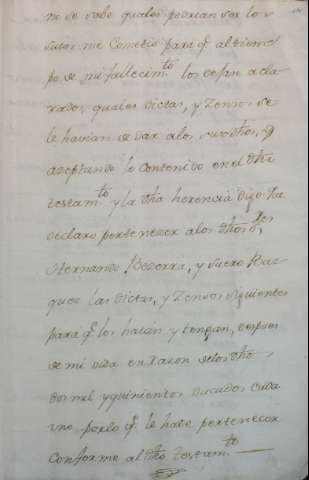 no se sabe quales podrian ser lo
suso me Cometio para q.e al tiem-
po de mi fallecim.to los dexan acla-
rados, quales dictas, y Zensos se
le havian de dar a los susodhos, y
azeptando lo Contenido en el dho
testam.to y la dha herencia digo: ha
declaro pertenecer a los dhos s.res
Hernando Bezerra, y Suero Baz-
quez las dictas, y Zensos siguientes
para q.e los haian y tengan, despues
de mi vida en razon de los dho
dos mil y quinientos ducados cada
uno por lo q.e le hase pertenecer
Conforme al dho testam.to